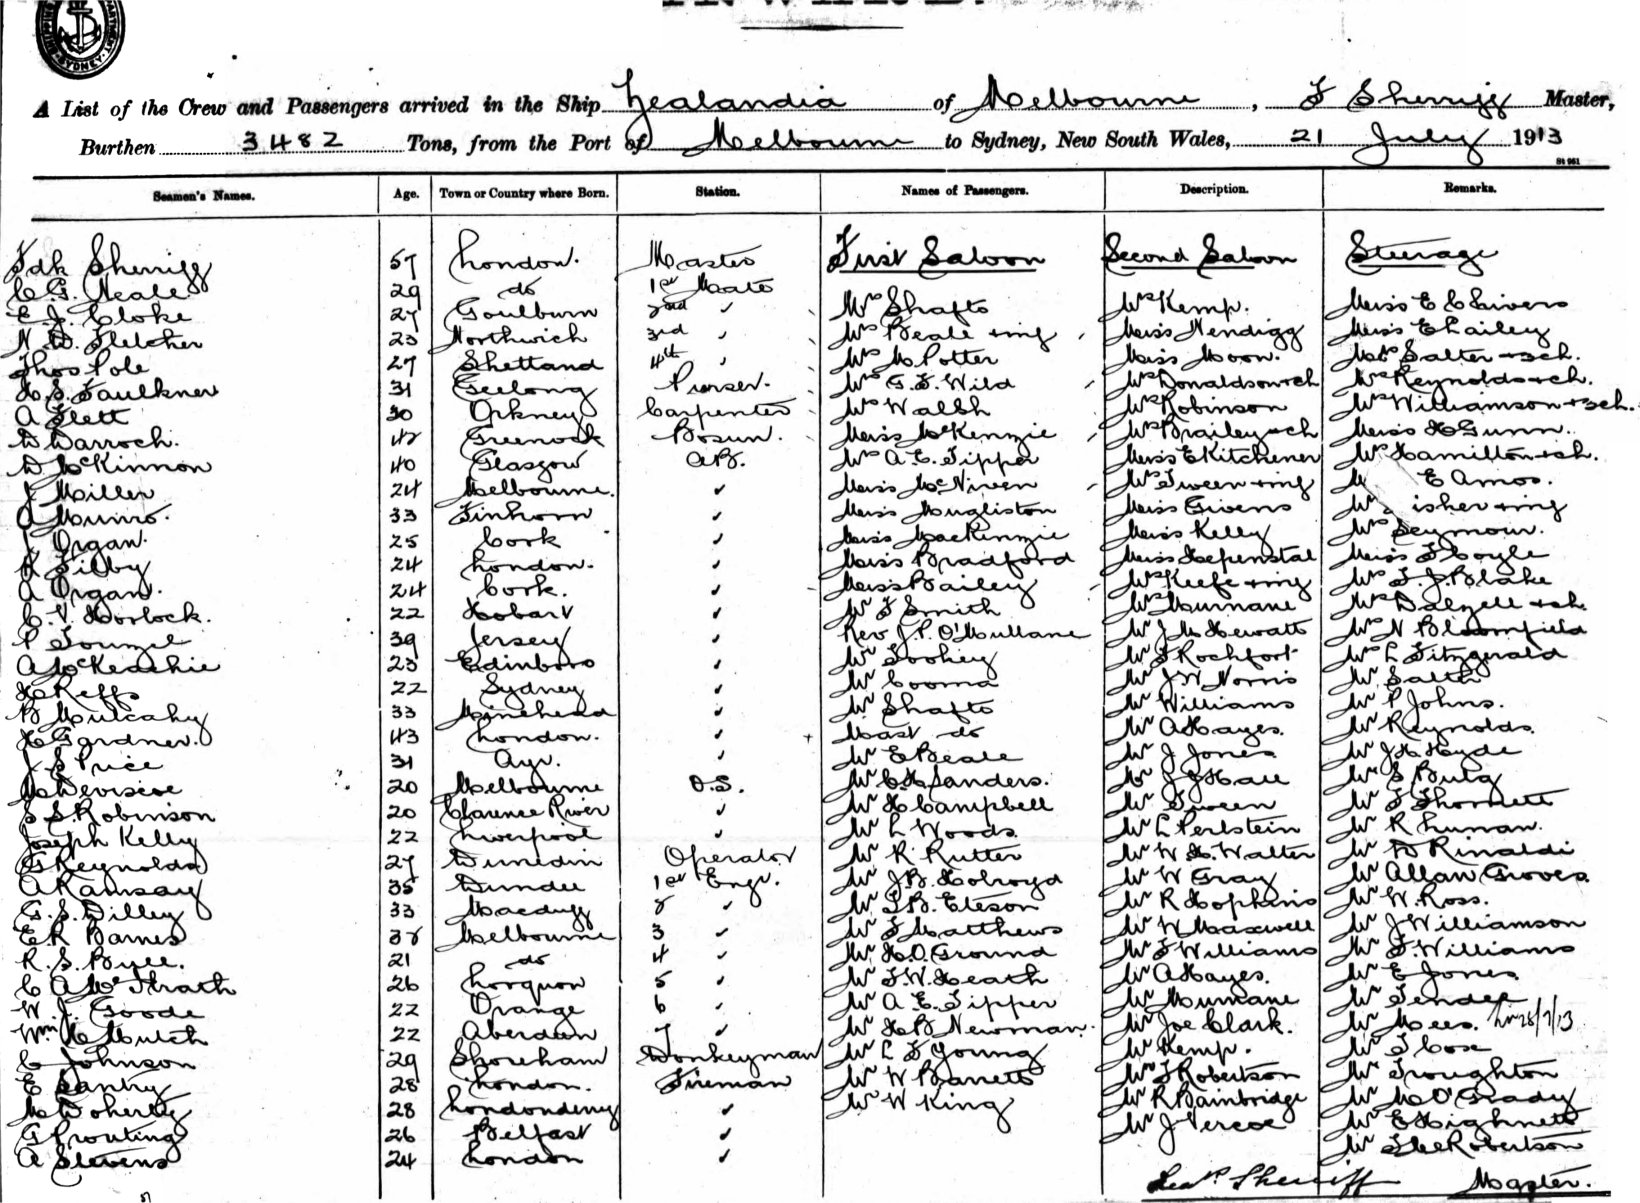 SYDNEY
A List of the Crew and Passengers arrived in the Ship Zealandia of Melbourne, F Sherriff Master,
Burthen 3482 Tons, from the Port of Melbourne to Sydney, New South Wales, 21 July 1913
St 961
Seamen's Names. Age. Town or Country where Born. Station. Names of Passengers. Description. Remarks.
First Saloon Second Saloon Steerage
Fdk Sherriff 57 London. Master
C. G. Neale 29 do 1st Mate
E. J. Cloke 27 Goulburn 2nd " Mrs Shafto Mrs Kemp. Miss E C Sivers
N. D. Fletcher 23 Northwich 3rd " Mrs Beale + inf Miss Nendigg Miss E Lailey
Thos Pole 27 Shetland 4th " Mrs M Potter Miss Moon. Mrs Salter + ch.
H. S. Faulkner 31 Geelong Purser. Mrs G. F. Wild Mrs Donaldson + ch Mrs Reynolds + ch.
A Flett 30 Orkney Carpenter Mrs Walsh Mrs Robinson Mrs Williamson + 3 ch.
D Darroch. 42 Greenock Bosun. Miss McKenzie Mrs Brailey + ch Miss H Gunn.
D McKinnon 40 Glasgow AB. Mrs A. E. Tipper Miss E Kitchener Mrs Hamilton + ch.
J Miller 24 Melbourne. " Miss McNiven Mrs Tween + inf E Amos.
A Munro. 33 Finhorn " Miss Mugliston Miss Givens isher + inf
J Organ. 25 Cork " Miss MacKinzie Miss Kelly Mrs Seymour.
R Silby 24 London. " Miss Bradford Miss Hepenstal Miss F Coyle
A Organ. 24 Cork. " Miss Bailey Mrs Keefe + inf Mrs F. J. Blake
C. V. Horlock. 22 Hobart " Mr F Smith Mrs Murnane Mrs Dalzell + ch
P Touzel 39 Jersey " Rev J. P. O'Mullane Mr J M Hewatt Mrs N Bloomfield
A McKeachie 23 Edinboro " Mr Tookey Mr F Rochfort Mrs L Fitzgerald
H Reffs 22 Sydney " Mr Cooma Mr J W Norris Mr Salter
B Mulcahy 33 Minehead " Mr Shafto Mr Williams Mr P Johns.
H Gardner. 43 London. " Mast do Mr A Hayes. Mr Reynolds.
J S Price 31 Ayr. " Mr E Beale Mr J Jones Mr J H Hyde
M Deviscoe 20 Melbourne O.S. Mr C H Sanders. Mr J J Hall Mr S Butg
S S. Robinson 20 Clarence River " Mr H Campbell Mr Tween Mr F Thornett
Joseph Kelly 22 Liverpool " Mr L Woods Mr L Perlstein Mr R Lunan.
G Reynolds 27 Dunedin Operator Mr R Rutter Mr W H. Walter Mr D Rinaldi
A Ramsay 35 Dundee 1st Engr. Mr J B. Holroyd Mr W Gray Mr Allan Groves.
G. S. Dilley 33 Macduff 2 " Mr L B. Eteson Mr R Hopkins Mr W. Ross.
E R Barnes 32 Melbourne 3 " Mr F Matthews Mr W Maxwell Mr J Williamson
R. S. Bull. 21 do 4 " Mr H. O. Ground Mr F Williams Mr F. Williams
C A McIlrath 26 Lorquon 5 " Mr F. W. Heath Mr A Hayes. Mr E Jones
W. J. Goode 22 Orange 6 " Mr A E. Tipper Mr Murnane Mr Tender
Wm H Mutch 22 Aberdeen 7 " Mr H B Newman. Mr Joe Clark. Mr Mees. 28/7/13
C Johnson 29 Shoreham Donkeyman Mr L F Young Mr Kemp. Mr F Cox
E Santry 28 London. Fireman Mr W Barrett Mr F Robertson Mr Troughton
M Doherty 28 Londonderry " Mr W King Mr R Bainbridge Mr M O'Grady
G Prouting 26 Belfast " Mr J Vercoe Mr E Highnett
A Stevens 24 London " Mr F Robertson
Sherriff Master.